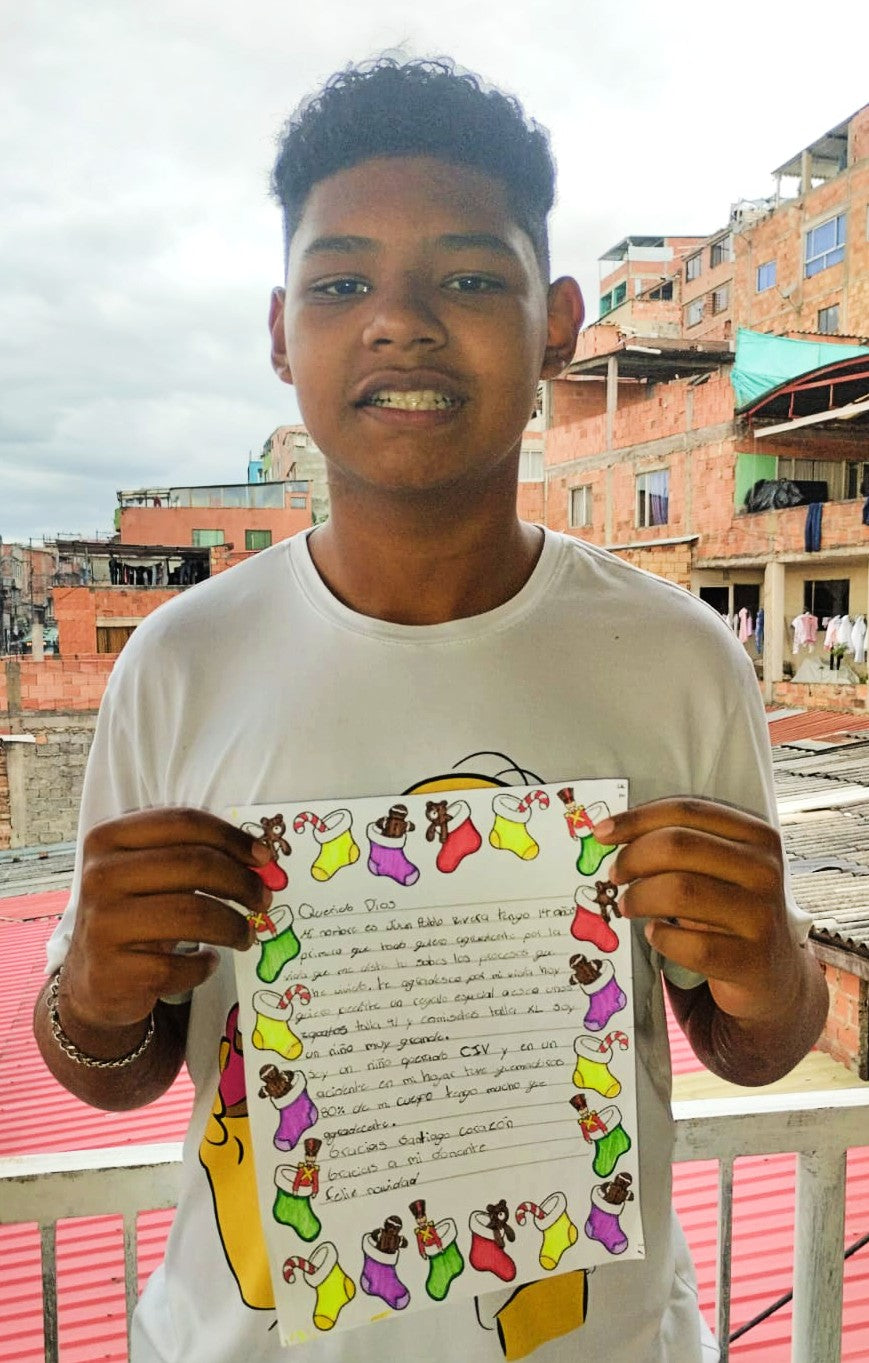 Querido Dios
Mi nombre es Juan Pablo Rivera tengo 14 años
primero que todo quiero agradecerte por la
vida que me diste tu sabes los procesos que
he vivido, te agradesco por mi vida hoy
quiero pedirte un regalo especial unos
zapatos talla 41 y camisetas talla XL soy
un niño muy grande.
soy un niño quemado CJV y en un
acidente en mi hogar tuve quemaduras
80% de mi cuerpo tengo mucho que
agradecerte.
Gracias Santiago corazón
Gracias a mi donante
Feliz navidad